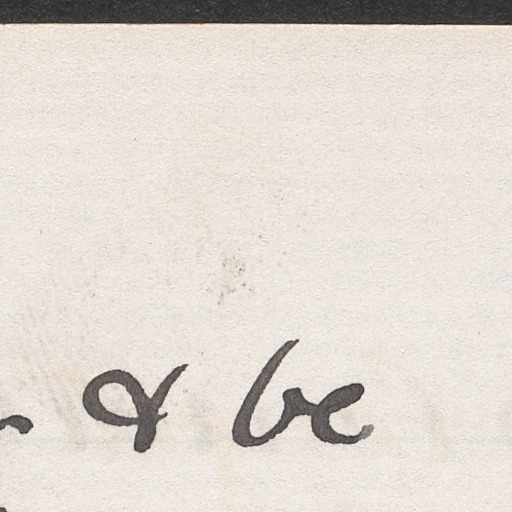 & be